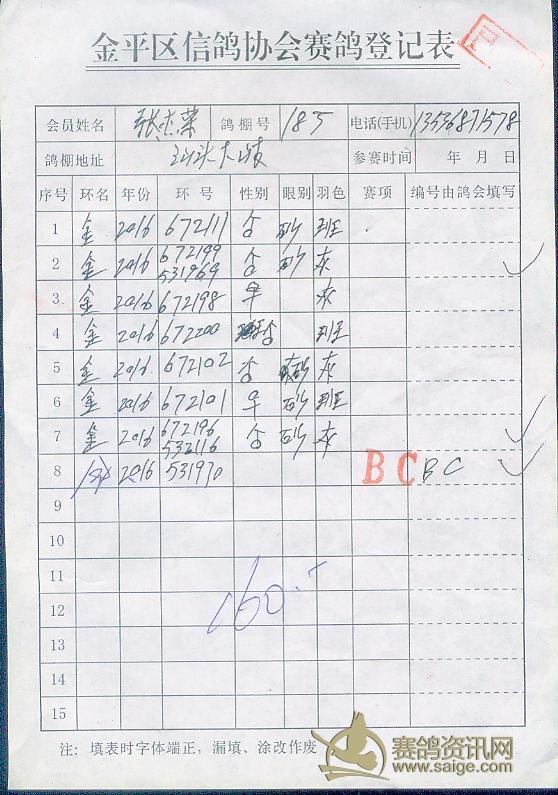 金平区信鸽协会赛鸽登记表
会员姓名 张杰荣 鸽棚号 1835 电话(手机) 13536871578
鸽棚地址 参赛时间 年 月 日
序号 环名 年份 环号 性别 眼别 羽色 赛项 编号由鸽会填写
1 金 2016 672111 合 砂 班
2 金 2016 672199 合 砂 灰
531969
3 金 2016 672198 早 灰
4 金 2016 672200 合 班
5 金 2016 672102 合 砂 灰
6 金 2016 672101 早 砂 班
7 金 2016 672196 合 砂 灰
532116
8 2016 531970 BC BC
9
10
11
12
13
14
15
160.-
注：填表时字体端正，漏填、涂改作废
赛鸽资讯网
www.saige.com